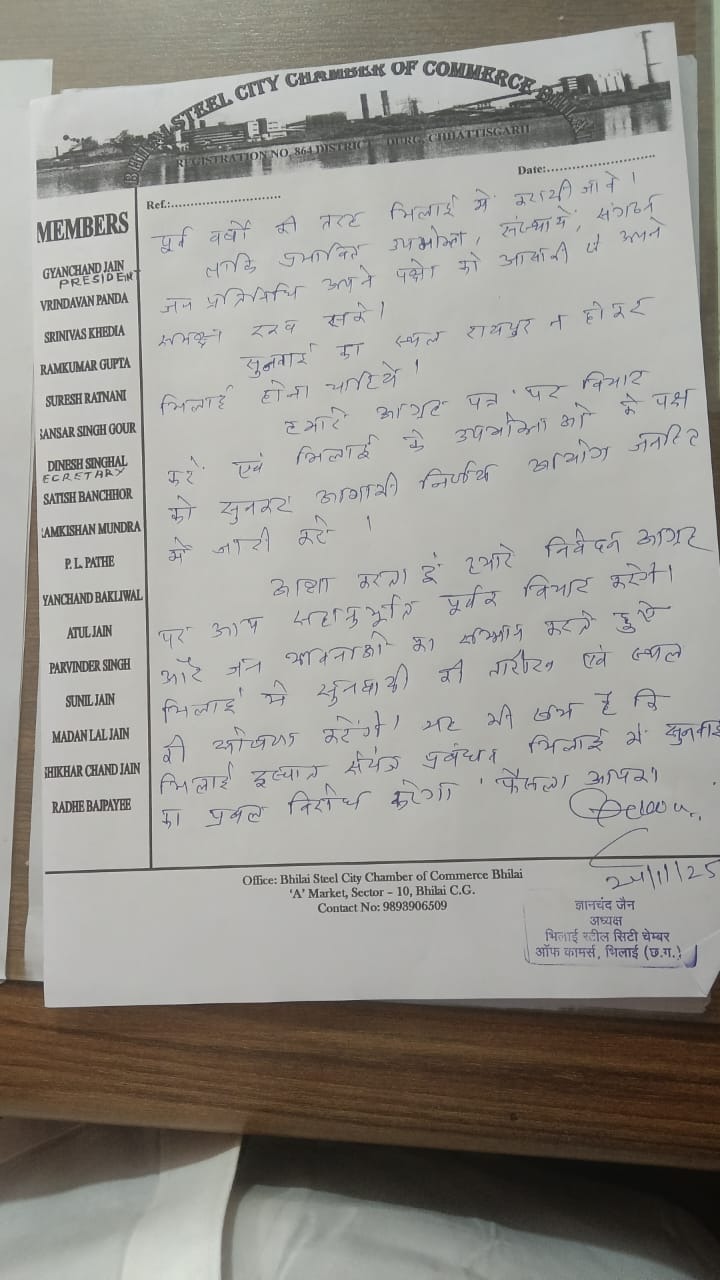 BHILAI STEEL CITY CHAMBER OF COMMERCE BHILAI
REGISTRATION NO. 864 DISTRICT DURG, CHHATTISGARH
Ref.:............................
Date:............................
MEMBERS
GYANCHAND JAIN
PRESIDENT
VRINDAVAN PANDA
SRINIVAS KHEDIA
RAMKUMAR GUPTA
SURESH RATNANI
SANSAR SINGH GOUR
DINESH SINGHAL
ECRETARY
SATISH BANCHHOR
AMKISHAN MUNDRA
P. L. PATHE
YANCHAND BAKLIWAL
ATUL JAIN
PARVINDER SINGH
SUNIL JAIN
MADAN LAL JAIN
SHIKHAR CHAND JAIN
RADHE BAJPAYEE
पूर्व वर्षो की तरह भिलाई में करायी जावे।
ताकि प्रभावित उपभोक्ता, संस्थायें, संगठन
जन प्रतिनिधि अपने पक्षो को आसानी से अपने
समक्ष रख सके।
सुनवाई का स्थल रायपुर न होकर
भिलाई होना चाहिये!
हमारे आग्रह पत्र पर विचार
करें एवं भिलाई के उपभोक्ताओ के पक्ष
को सुनकर आगामी निर्णय आयोग जनहित
मे जारी करे।
आशा करता हुं हमारे निवेदन आग्रह
पर आप सहानुभूति पूर्वक विचार करेंगे।
और जन भावनाओ का सम्मान करते हुऐ
भिलाई मे सुनवायी की तारीख एवं स्थल
की घोषणा करेंगे। यह भी सच है कि
भिलाई इस्पात संयंत्र प्रबंधन भिलाई में सुनवाई
का प्रबल विरोध करेगा फैसला आपका
24/11/25
Office: Bhilai Steel City Chamber of Commerce Bhilai
'A' Market, Sector - 10, Bhilai C.G.
Contact No: 9893906509
ज्ञानचंद जैन
अध्यक्ष
भिलाई स्टील सिटी चेम्बर
ऑफ कामर्स, भिलाई (छ.ग.)